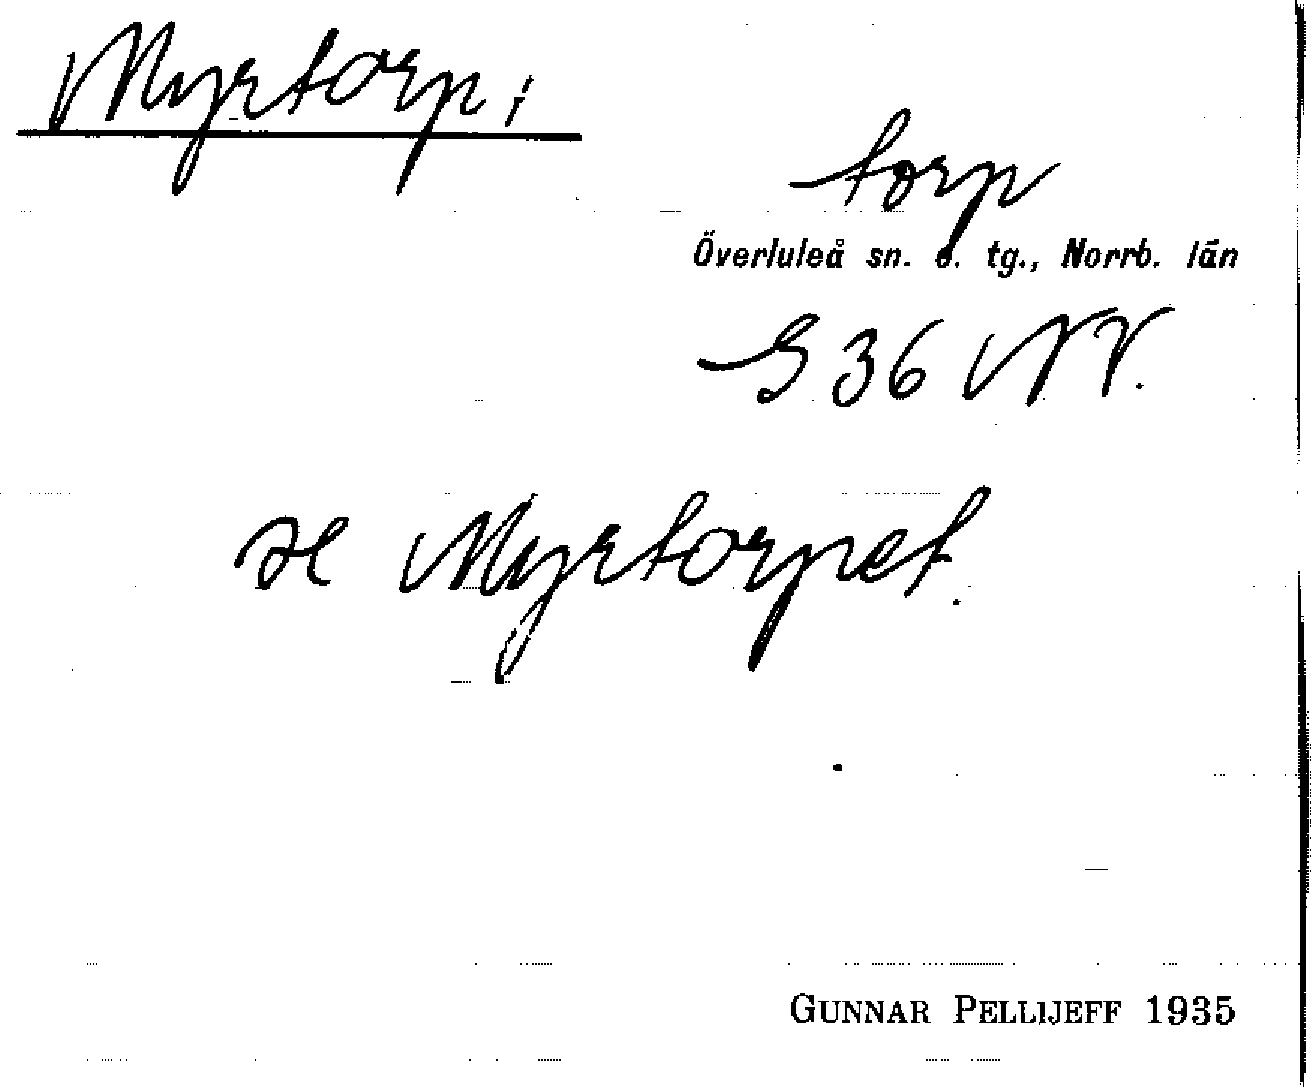 Myrtorp;
torp
Överluleå sn. o. tg., Norrb. län
S 36 NV.
se Myrtorpet.
GUNNAR PELLIJEFF 1935